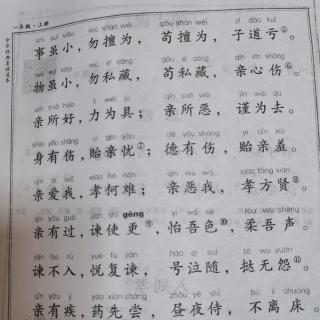 一年级·上册
shì suī xiǎo wù shàn wéi gǒu shàn wéi zǐ dào kuī
事虽小，勿擅为，苟擅为，子道亏⑤。
wù suī xiǎo wù sī cáng gǒu sī cáng qīn xīn shāng
物虽小，勿私藏，苟私藏，亲心伤⑥。
qīn suǒ hào lì wèi jù qīn suǒ wù jǐn wèi qù
亲所好，力为具，亲所恶，谨为去。
shēn yǒu shāng yí qīn yōu dé yǒu shāng yí qīn xiū
身有伤，贻亲忧⑦；德有伤，贻亲羞。
qīn ài wǒ xiào hé nán qīn wù wǒ xiào fāng xián
亲爱我，孝何难；亲恶我，孝方贤⑧。
qīn yǒu guò jiàn shǐ gēng yí wú sè róu wú shēng
亲有过，谏使更⑨，怡吾色⑩，柔吾声。
jiàn bú rù yuè fù jiàn háo qì suí tà wú yuàn
谏不入，悦复谏，号泣随，挞无怨⑪。
qīn yǒu jí yào xiān cháng zhòu yè shì bù lí chuáng
亲有疾，药先尝，昼夜侍，不离床。